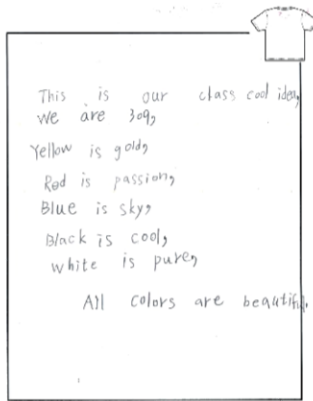 This is our class cool idea,
we are 309,
Yellow is gold,
Red is passion,
Blue is sky,
Black is cool,
white is pure,
All colors are beautiful.